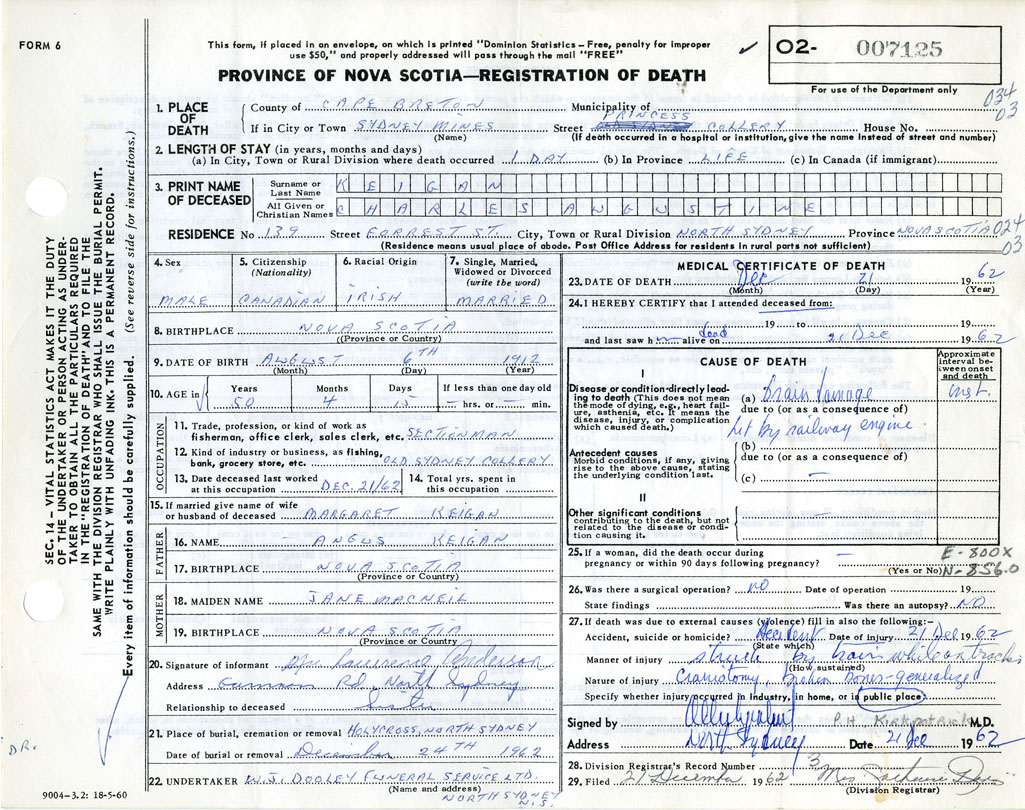 FORM 6
This form, if placed in an envelope, on which is printed "Dominion Statistics – Free, penalty for improper
use $50," and properly addressed will pass through the mail "FREE"
✓ 02- 007125
PROVINCE OF NOVA SCOTIA—REGISTRATION OF DEATH
For use of the Department only
034
03
1. PLACE OF DEATH
County of CAPE BRETON Municipality of
If in City or Town SYDNEY MINES Street PRINCESS COLLERY House No.
(Name) (If death occurred in a hospital or institution, give the name instead of street and number)
2. LENGTH OF STAY (in years, months and days)
(a) In City, Town or Rural Division where death occurred 1 DAY (b) In Province LIFE (c) In Canada (if immigrant)
3. PRINT NAME OF DECEASED
Surname or Last Name KEIGAN
All Given or Christian Names CHARLES ANGUSTINE
RESIDENCE No 139 Street FORREST ST. City, Town or Rural Division NORTH SYDNEY Province NOVA SCOTIA 024
03
(Residence means usual place of abode. Post Office Address for residents in rural parts not sufficient)
4. Sex MALE
5. Citizenship (Nationality) CANADIAN
6. Racial Origin IRISH
7. Single, Married, Widowed or Divorced (write the word) MARRIED
8. BIRTHPLACE NOVA SCOTIA
(Province or Country)
9. DATE OF BIRTH ANGUST 6TH 1912
(Month) (Day) (Year)
10. AGE in Years 50 Months 4 Days 15 If less than one day old – hrs. or – min.
OCCUPATION
11. Trade, profession, or kind of work as
fisherman, office clerk, sales clerk, etc. SECTIONMAN
12. Kind of industry or business, as fishing,
bank, grocery store, etc. OLD SYDNEY COLLERY
13. Date deceased last worked
at this occupation DEC. 21/62
14. Total yrs. spent in
this occupation
15. If married give name of wife
or husband of deceased MARGARET KEIGAN
FATHER
16. NAME ANGUS KEIGAN
17. BIRTHPLACE NOVA SCOTIA
(Province or Country)
MOTHER
18. MAIDEN NAME JANE MACNEIL
19. BIRTHPLACE NOVA SCOTIA
(Province or Country)
20. Signature of informant Lawrence
Address Rd. North Sydney
Relationship to deceased
21. Place of burial, cremation or removal HOLYCROSS, NORTH SYDNEY
Date of burial or removal December 24TH 1962
22. UNDERTAKER W.J. DOOLEY FUNERAL SERVICE LTD.
(Name and address) NORTH SYDNEY
N.S.
9004-3.2: 18-5-60
MEDICAL CERTIFICATE OF DEATH
23. DATE OF DEATH Dec 21 1962
(Month) (Day) (Year)
24. I HEREBY CERTIFY that I attended deceased from:
19 to 19
and last saw h alive on dead 21 Dec 1962
CAUSE OF DEATH
Approximate interval between onset and death
I
Disease or condition directly leading to death (This does not mean the mode of dying, e.g., heart failure, asthenia, etc. It means the disease, injury, or complication which caused death.)
(a) Brain damage inst.
due to (or as a consequence of)
hit by railway engine.
Antecedent causes
Morbid conditions, if any, giving rise to the above cause, stating the underlying condition last.
(b)
due to (or as a consequence of)
(c) –
II
Other significant conditions
contributing to the death, but not related to the disease or condition causing it.
–
25. If a woman, did the death occur during
pregnancy or within 90 days following pregnancy? –
(Yes or No)
E-800X
N-856.0
26. Was there a surgical operation? NO Date of operation 19
State findings Was there an autopsy? NO
27. If death was due to external causes (violence) fill in also the following:–
Accident, suicide or homicide? Accident Date of injury 21 Dec 1962
(State which)
Manner of injury struck by train while on tracks
(How sustained)
Nature of injury broken bones-generalized
Specify whether injury occurred in industry, in home, or in public place
Signed by P.H. Kirkpatrick M.D.
Address North Sydney Date 21 Dec 1962
28. Division Registrar's Record Number 3
29. Filed 21 December 1962 Mrs.
(Division Registrar)
SEC. 14 – VITAL STATISTICS ACT MAKES IT THE DUTY
OF THE UNDERTAKER OR PERSON ACTING AS UNDER-
TAKER TO OBTAIN ALL THE PARTICULARS REQUIRED
IN THE "REGISTRATION OF DEATH" AND TO FILE THE
SAME WITH THE DIVISION REGISTRAR WHO SHALL ISSUE THE BURIAL PERMIT.
WRITE PLAINLY WITH UNFADING INK. THIS IS A PERMANENT RECORD.
Every item of information should be carefully supplied. (See reverse side for instructions.)
DR.